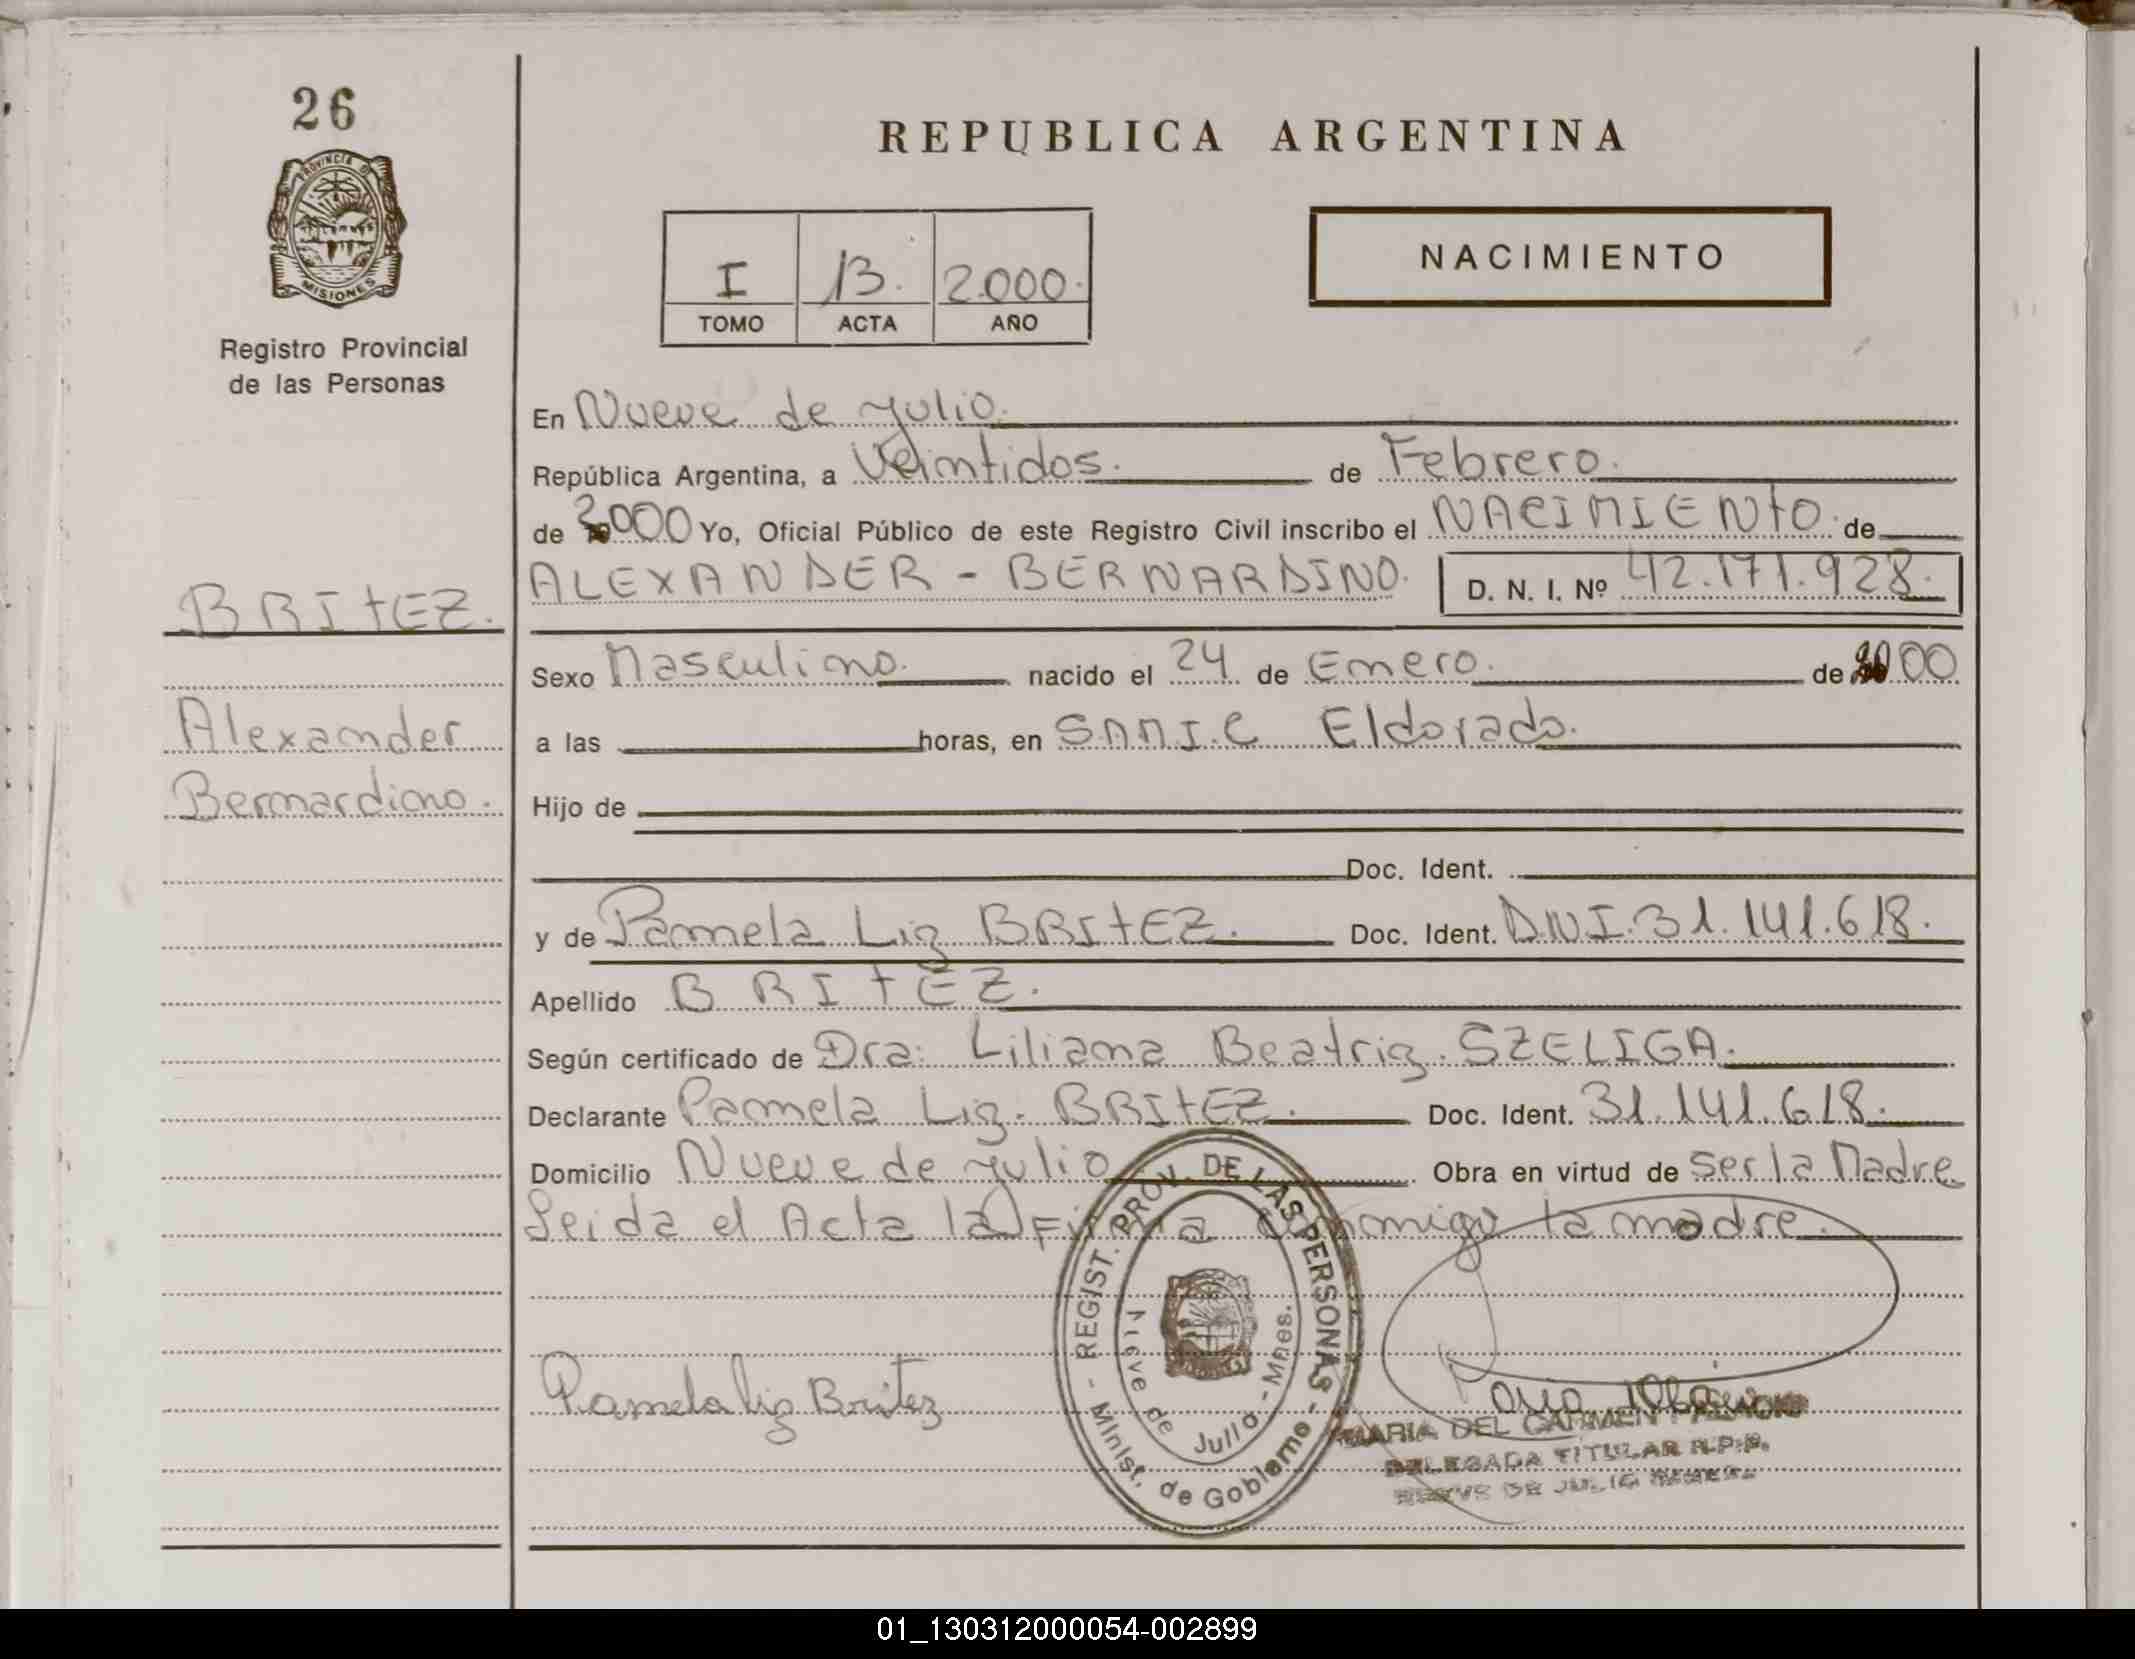 26
PROVINCIA DE
MISIONES
Registro Provincial
de las Personas
REPUBLICA ARGENTINA
NACIMIENTO
I 13. 2.000.
TOMO ACTA AÑO
En Nueve de Julio.
República Argentina, a Veintidos. de Febrero.
de 2000 Yo, Oficial Público de este Registro Civil inscribo el NACIMIENTO. de
BRITEZ.
ALEXANDER - BERNARDINO. D. N. I. Nº 42.171.928.
Sexo Masculino. nacido el 24 de Enero. de 2000
Alexander
a las horas, en S.A.M.I.C Eldorado.
Bernardino.
Hijo de
Doc. Ident.
y de Pamela Liz BRITEZ. Doc. Ident. D.N.I. 31.141.618.
Apellido BRITEZ.
Según certificado de Dra: Liliana Beatriz SZELIGA.
Declarante Pamela Liz. BRITEZ. Doc. Ident. 31.141.618.
Domicilio Nueve de Julio Obra en virtud de ser la Madre
Leida el Acta la Firma conmigo la madre.
- REGIST. PROV. DE LAS PERSONAS - Minist. de Gobierno
Nueve de Julio - Mnes.
Pamela Liz Britez
MARIA DEL CARMEN
DELEGADA TITULAR R.P.P.
NUEVE DE JULIO
01_130312000054-002899